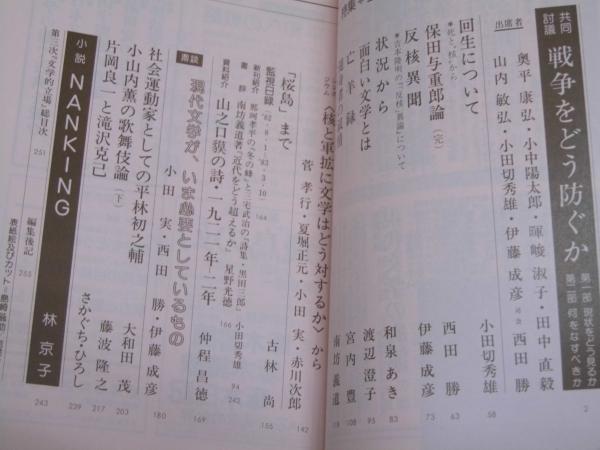 特集
共同討議
戦争をどう防ぐか
第一部 現状をどう見るか
第二部 何をなすべきか
2
出席者
奥平 康弘・小中陽太郎・暉峻 淑子・田中 直毅
山内 敏弘・小田切秀雄・伊藤 成彦 司会 西田 勝
回生について
小田切秀雄
58
＊死と“核”から
保田与重郎論(完)
西田 勝
63
反核異聞
伊藤 成彦
73
＊吉本隆明の『「反核」異論』について
状況から
和泉 あき
83
面白い文学とは
渡辺 澄子
95
亡羊録
宮内 豊
108
南坊義道
〈核と軍拡に文学はどう対するか〉から
菅 孝行・夏堀正元・小田 実・赤川次郎
142
「桜島」まで
古林 尚
155
監視日録 '82・8・1〜'83・3・10
164
新刊紹介 那珂孝平の『冬の蜂』と三宅武治の『詩集・黒田三郎』 小田切秀雄
94
書評 南坊義道著『近代をどう超えるか』 星野光徳
242
資料紹介
166
山之口貘の詩・一九二一年―二年
仲程 昌徳
169
書談
現代文学が、いま必要としているもの
小田 実・西田 勝・伊藤 成彦
180
社会運動家としての平林初之輔
大和田 茂
203
小山内薫の歌舞伎論(下)
藤波 隆之
217
片岡良一と滝沢克己
さかぐち・ひろし
239
小説 NANKING
林 京子
243
第三次「文学的立場」総目次
251
編集後記
255
表紙絵及びカット=島崎蓊助